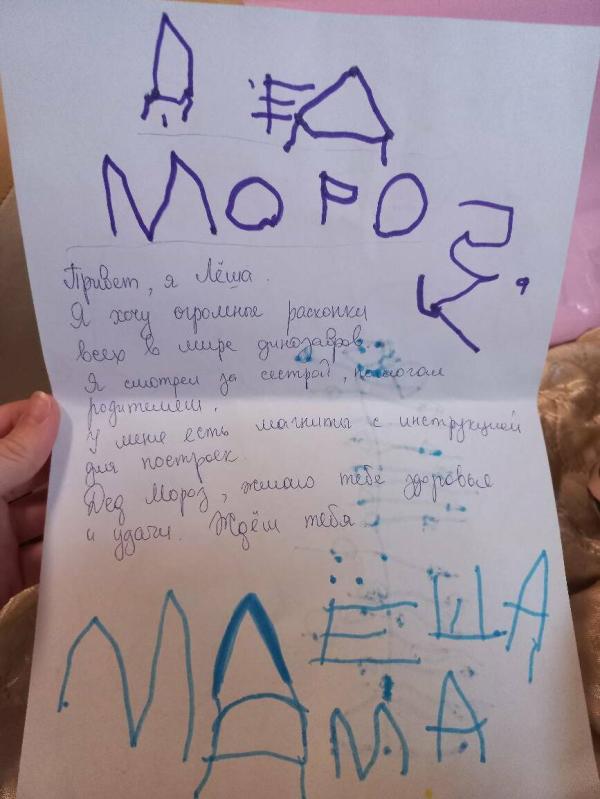 ДЕД
МОРОЗ
Привет, я Лёша.
Я хочу огромные раскопки
всех в мире динозавров
Я смотрел за сестрой, помогал
родителям.
У меня есть магниты с инструкцией
для построек.
Дед Мороз, желаю тебе здоровья
и удачи. Ждём тебя.
МА ЁША
МА